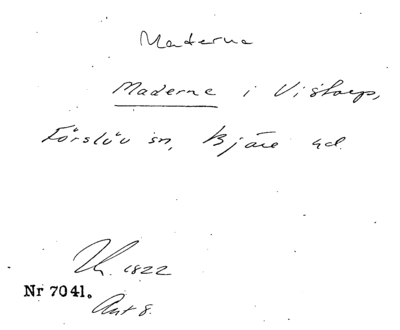 Maderna
Maderne i Vistorp,
Förslöv sn, Bjäre hd.
1822
Nr 7041.
Ant 8.